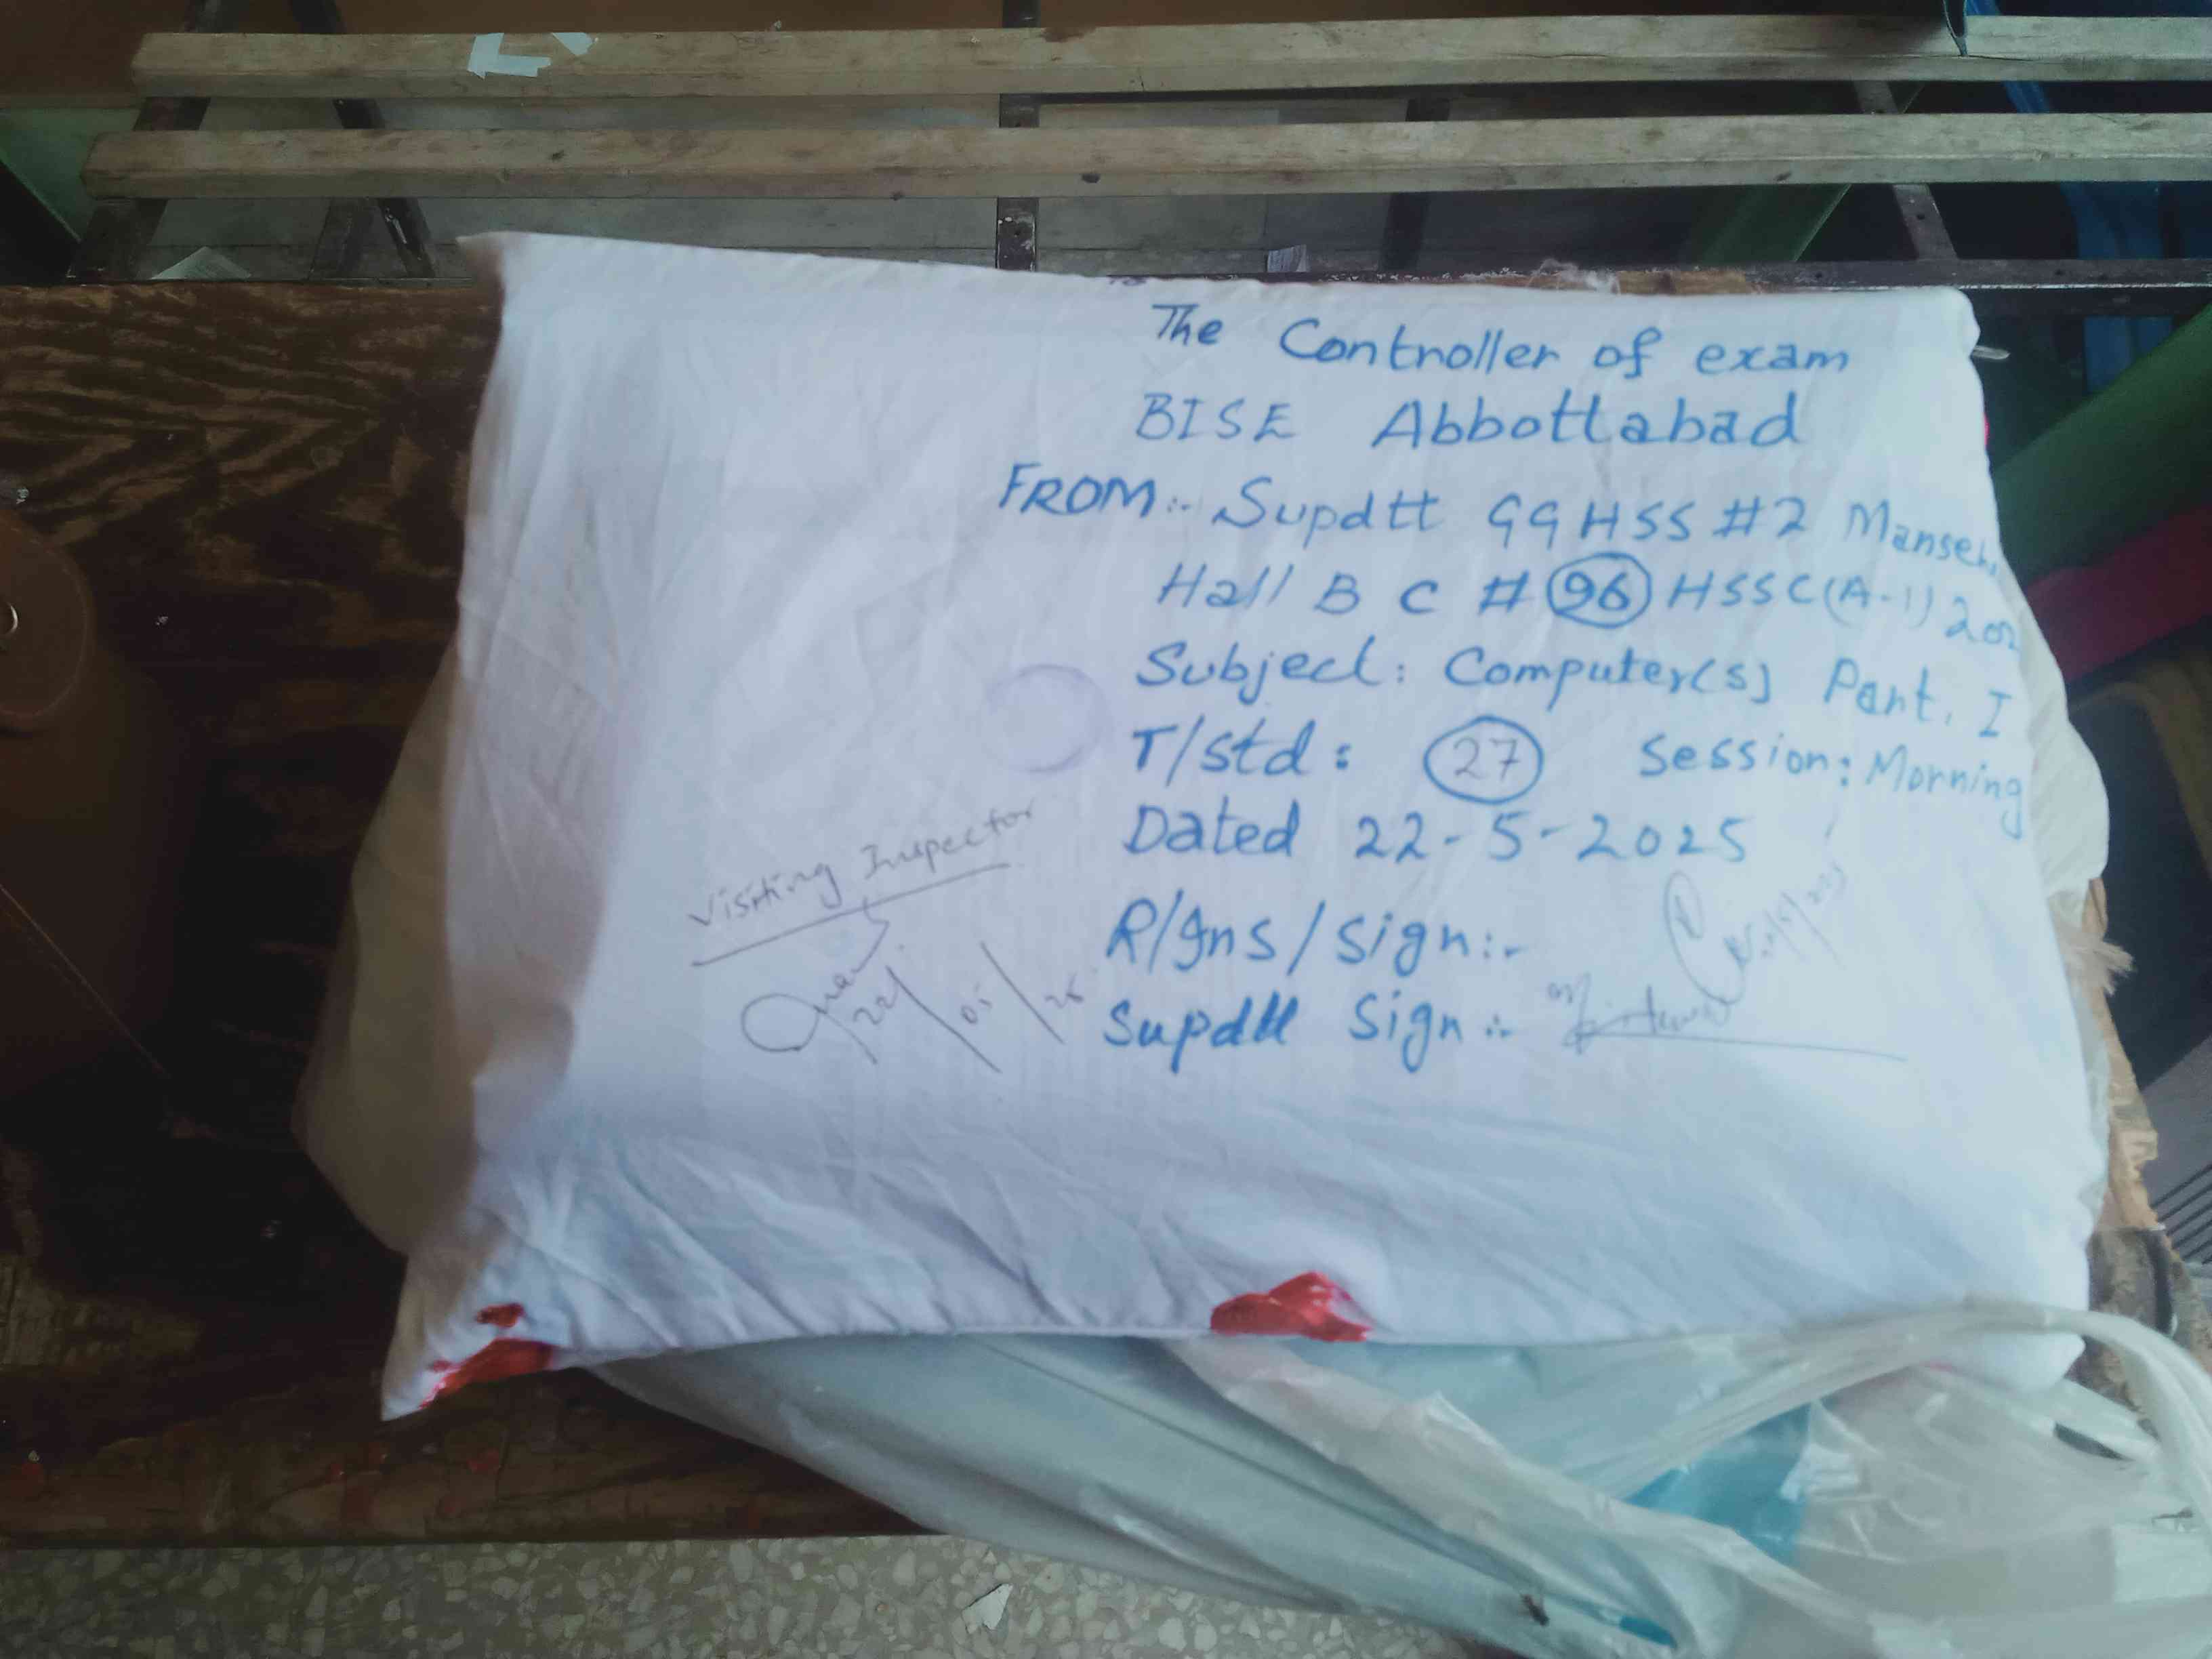 The Controller of exam
BISE Abbottabad
FROM:- Supdtt GGHSS #2 Manseh
Hall B C # 96 HSSC(A-1) 202
Subject: Computer(s) Part. I
T/std: 27 Session: Morning
Dated 22-5-2025
R/Ins/Sign:-
Supdtt Sign:-
Visiting Inspector
22/05/25